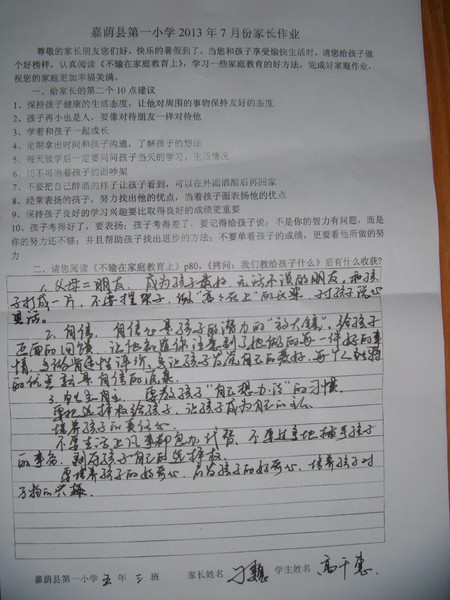 嘉荫县第一小学 2013 年 7 月份家长作业
尊敬的家长朋友您们好，快乐的暑假到了，当您和孩子享受愉快生活时，请您给孩子做
个好榜样，认真阅读《不输在家庭教育上》，学习一些家庭教育的好方法，完成好家庭作业，
祝您的家庭更加幸福美满。
一、给家长的第二个 10 点建议
1、保持孩子健康的生活态度，让他对周围的事物保持友好的态度
2、孩子再小也是人，要像对待朋友一样对待他
3、学着和孩子一起成长
4、定期拿出时间和孩子沟通，了解孩子的想法
5、每天放学后一定要问问孩子当天的学习、生活情况
6、切不可当着孩子的面吵架
7、不要把自己醉酒的样子让孩子看到，可以在外面酒醒后再回家
8、经常表扬的孩子，努力找出他的优点，当着孩子面表扬他的优点
9、保持孩子良好的学习兴趣要比取得良好的成绩更重要
10、孩子考得好了，要表扬；孩子考得差了，要记得给孩子说：不是你的智力有问题，而是
你的努力还不够；并且帮助孩子找出进步的方法；不要单看孩子的成绩，更要看他所做的努
力
二、请您阅读《不输在家庭教育上》p80，《拷问：我们教给孩子什么》后有什么收获？
1. 父母=朋友，成为孩子最好、无话不说的朋友，和孩
子打成一片，不要摆架子，做"高高在上"的长辈，对孩子说心
里话。
2. 自信，自信心是孩子的潜力的"放大镜"，给孩子
正面的回馈，让他知道你注意到了他做的每一件好的事
情，多做肯定性评价，
的优点就是自信的源泉。
3. 自己主自主，要教孩子"自己想办法"的习惯
要把选择权给孩子，让孩子成为自己的主人
培养孩子的责任心
不要生活上凡事都包办代替，不要过多地插手孩子
的事务，剥夺孩子自己的选择权。
要培养孩子的好奇心，启发孩子的好奇心，培养孩子对
万物的兴趣。
嘉荫县第一小学 五 年 三 班 家长姓名 学生姓名 高千惠